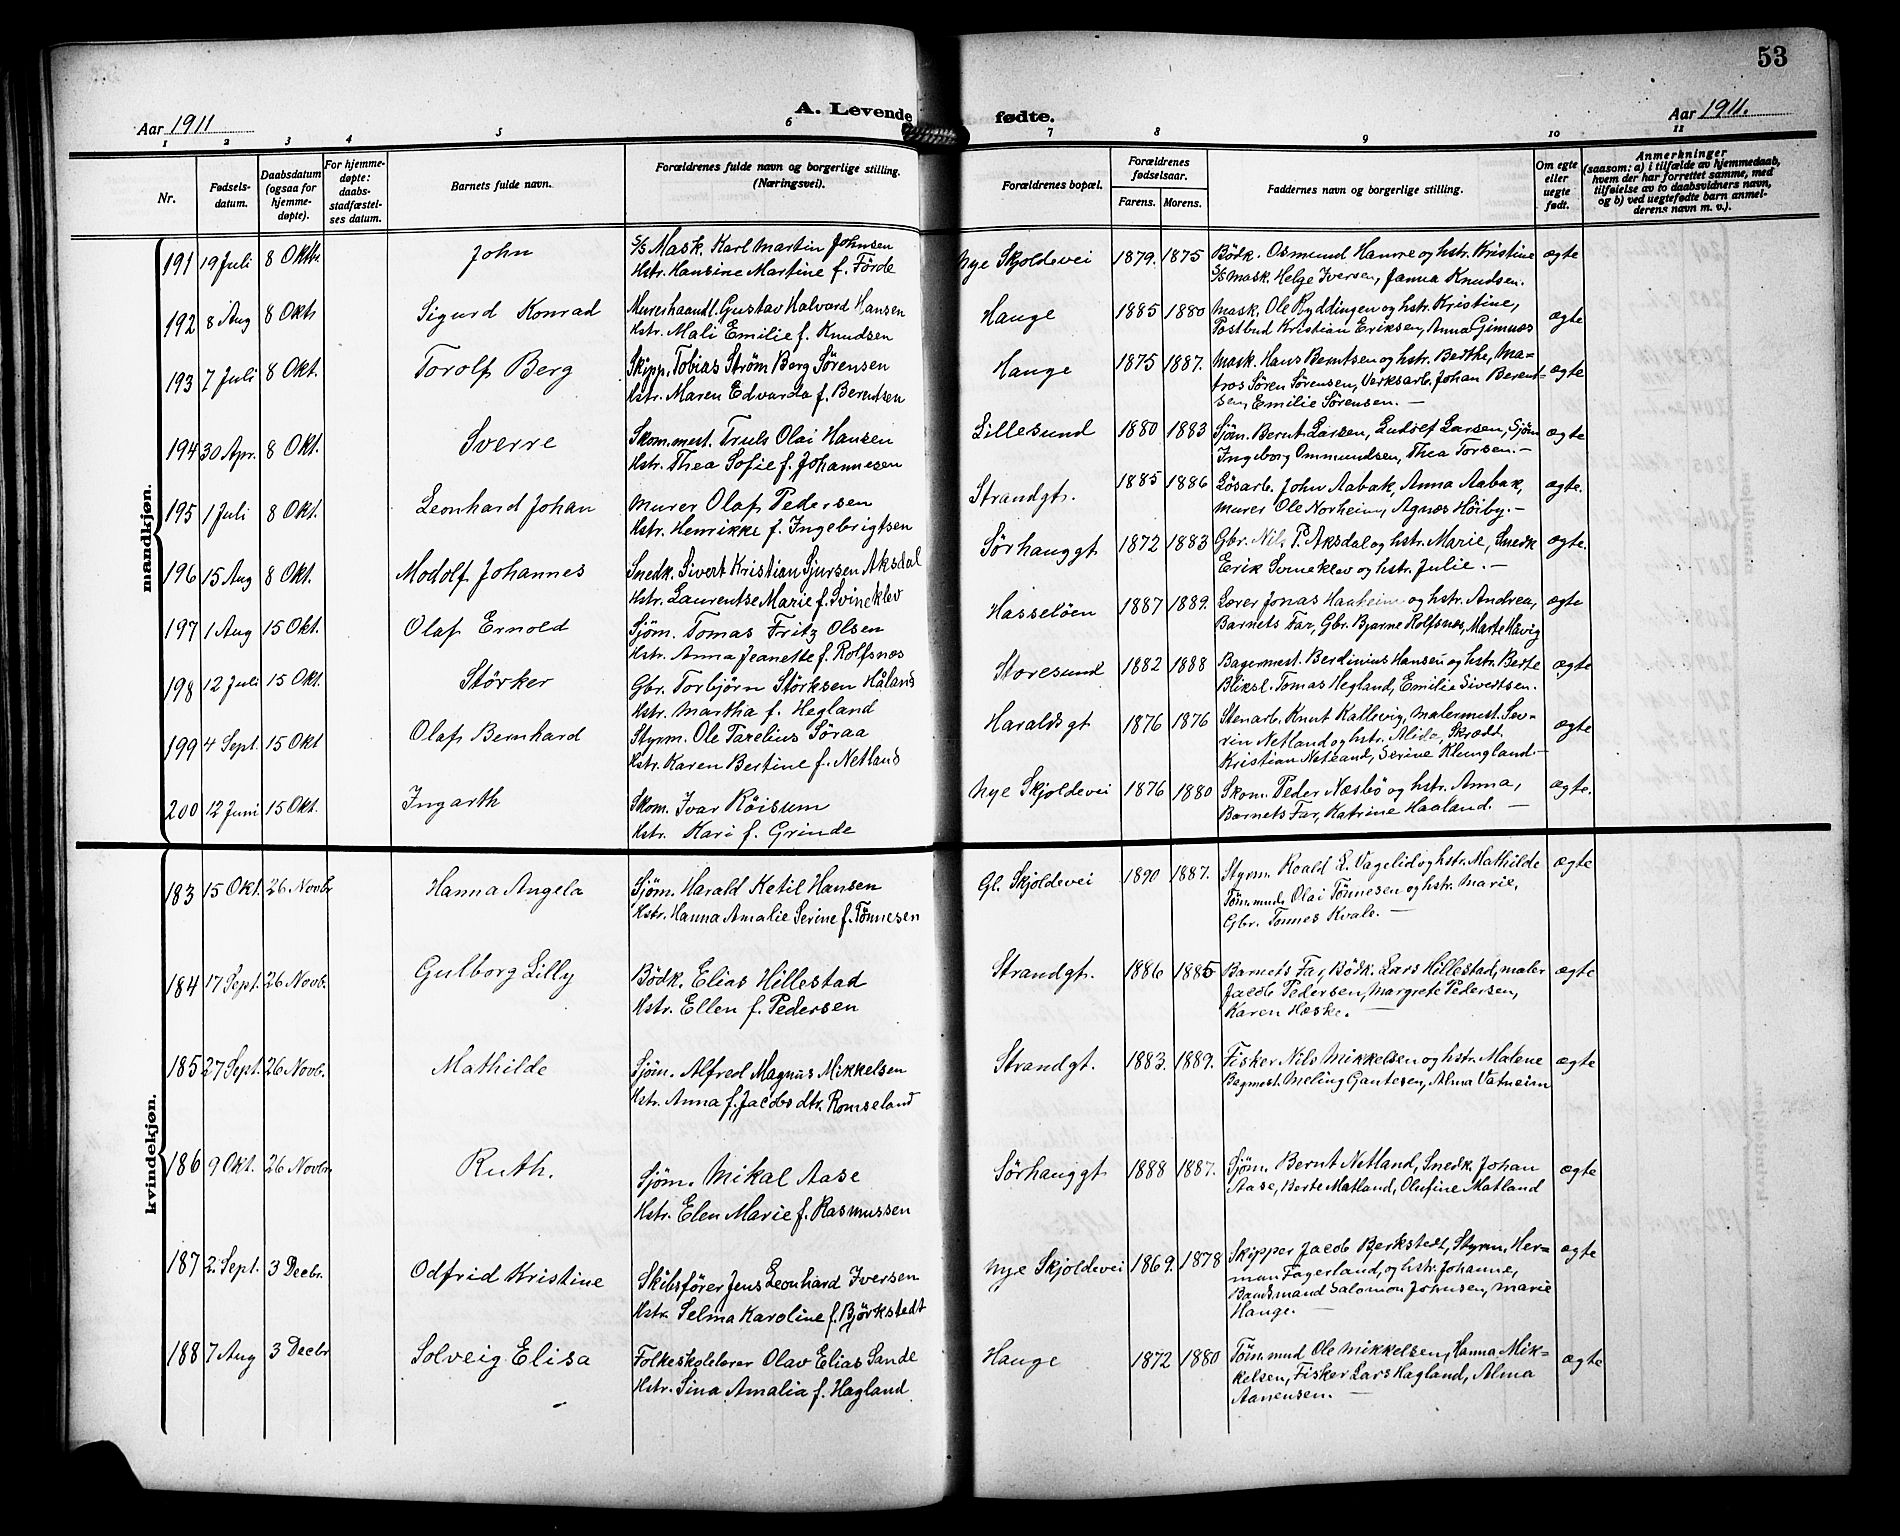 53
A. Levende fødte.
Aar 1911
Aar 1911.
1 2 3 4 5 6 7 8 9 10 11
Nr.
Fødsels-
datum.
Daabsdatum
(ogsaa for
hjemme-
døpte).
For hjemme-
døpte:
daabs-
stadfæstel-
ses datum.
Barnets fulde navn.
Forældrenes fulde navn og borgerlige stilling.
(Næringsvei).
Forældrenes bopæl.
Forældrenes
fødselsaar.
Farens. Morens.
Faddernes navn og borgerlige stilling.
Om egte
eller
uegte
født.
Anmerkninger
(saasom: a) i tilfælde av hjemmedaab,
hvem der har forrettet samme, med
tilføielse av to daabsvidners navn,
og b) ved uegtefødte barn anmel-
derens navn m. v.).
mandkjøn.
191 19 Juli 8 Oktbr. John
S/S Mask. Karl Martin Johnsen
Hstr. Hansine Martine f. Förde
Nye Skjoldevei 1879. 1875
Bödk. Osmund Hamre og hstr. Kristine
S/S mask. Helge Iversen, Janna Knudsen.
ægte
192 8 Aug 8 Okt. Sigurd Konrad
Murerhaandl. Gustav Halvard Hansen
Hstr. Mali Emilie f. Knudsen
Hauge 1885 1880
Mask. Ole Ryddingen og hstr. Kristine,
Postbud Kristian Eriksen, Anna Gimnæs
ægte
193 7 Juli 8 Okt. Torolf Berg
Skipp. Tobias Ström Berg Sörensen
Hstr. Maren Edvarda f. Berentsen
Hauge 1875 1887.
Mask. Hans Berntsen og hstr. Berthe, Ma-
tros Sören Sörensen, Verksarb. Johan Berent-
sen, Emilie Sörensen. —
ægte
194 30 Apr. 8 Okt. Sverre
Skom.mest. Truls Olai Hansen
Hstr. Thea Sofie f. Johannesen
Lillesund 1880 1883
Sjöm. Bernt Larsen, Ludolf Larsen, Sjöm
Ingeborg Ommundsen, Thea Torsen. —
ægte
195 1 Juli 8 Okt. Leonhard Johan
Murer Olaf Pedersen
Hstr. Henrikke f. Ingebrigtsen
Strandgt. 1885 1886
Lösarb. John Aabak, Anna Aabak,
Murer Ole Norheim, Agnes Höiby. —
ægte.
196 15 Aug 8 Okt. Modolf Johannes
Snedk. Sivert Kristian Sjursen Aksdal
Hstr. Laurentse Marie f. Svineklev
Sørhauggt 1872 1883
Gbr. Nils P. Aksdal og hstr. Marie, Snedk
Erik Svineklev og hstr. Julie. —
ægte.
197 1 Aug 15 Okt. Olaf Ernold
Sjöm. Tomas Fritz Olsen
Hstr. Anna Jeanette f. Rolfsnæs
Hasselöen 1887 1889.
Lærer Jonas Haaheim og hstr. Andrea,
Barnets Far, Gbr. Bjarne Rolfsnæs, Marte Hävig
ægte
198 12 Juli 15 Okt. Störker
Gbr. Torbjörn Störksen Håland
Hstr. Martha f. Hegland
Storesund 1882 1888
Bagermest. Berdinius Hansen og hstr. Berte
Bliksl. Tomas Hegland, Emilie Sivertsen.
ægte
199 4 Sept. 15 Okt Olaf Bernhard
Styrm. Ole Tarelius Söraa
Hstr. Karen Bertine f. Netland
Haraldsgt 1876 1876
Stenarb. Knut Kallevig, malermest. Sev-
rin Netland og hstr. Alida, Skrædt.
Kristian Netland, Serine Klungland. —
ægte
200 12 Juni 15 Okt. Ingarth
Skom. Ivar Röisum
Hstr. Kari f. Grinde
Nye Skjoldevei 1876 1880
Skom. Peder Næsbö og hstr. Anna,
Barnets Far, Katrine Haaland. —
ægte.
kvindekjøn.
183 15 Okt. 26 Novbr Hanna Angela
Sjöm. Harald Ketil Hansen
Hstr. Hanna Amalie Serine f. Tönnesen
Gl. Skjoldevei 1890 1887.
Styrm. Roald L. Vagelid og hstr. Mathilde
Töm.md. Olai Tönnesen og hstr. Marie,
Gbr. Tönnes Kvale. —
ægte
184 17 Sept. 26 Novb. Gulborg Lilly
Bödk. Elias Hillestad
Hstr. Ellen f. Pedersen
Strandgt. 1886 1885
Barnets Far, Bödk. Lars Hillestad, maler
Jacob Pedersen, Margrete Pedersen,
Karen Hæske. —
ægte
185 27 Sept. 26 Novb. Mathilde
Sjöm. Alfred Magnus Mikkelsen
Hstr. Anna f. Jacobsdtr. Romseland
Strandgt. 1883. 1889.
Fisker Nils Mikkelsen og hstr. Malene
Bagmest. Meling Gautesen, Alma Vatneim
ægte
186 9 Okt. 26 Novbr Ruth.
Sjöm. Mikal Aase
Hstr. Elen Marie f. Rasmussen
Sörhauggt 1888 1887.
Sjöm. Bernt Netland, Snedk. Johan
Aase, Berte Matland, Olufine Matland
ægte
187 2. Sept. 3 Decbr. Odfrid Kristine
Skibsförer Jens Leonhard Iversen
Hstr. Selma Karoline f. Björkstedt
Nye Skjoldevei 1869. 1878
Skipper Jacob Berkstedt, Styrm. Her-
man Fagerland, og hstr. Johanne,
Baadsmand Salomon Johnsen, Marie
Hauge. —
ægte
188 7 Aug 3 Decbr Solveig Elisa
Folkeskolelærer Olav Elias Sande
Hstr. Sina Amalia f. Hagland
Hauge 1872 1880
Töm.md. Ole Mikkelsen, Hanna Mik-
kelsen, Fisker Lars Hagland, Alma
Aanensen. —
ægte